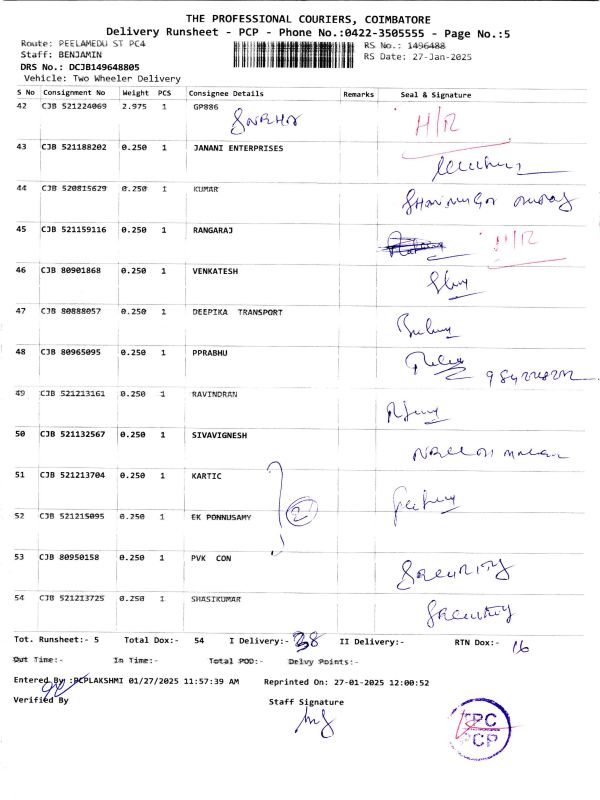 THE PROFESSIONAL COURIERS, COIMBATORE
Delivery Runsheet - PCP - Phone No.:0422-3505555 - Page No.:5
Route: PEELAMEDU ST PC4 RS No.: 1496488
Staff: BENJAMIN RS Date: 27-Jan-2025
DRS No.: DCJB149648805
Vehicle: Two Wheeler Delivery
S No Consignment No Weight PCS Consignee Details Remarks Seal & Signature
42 CJB 521224069 2.975 1 GP886 H/R
43 CJB 521188202 0.250 1 JANANI ENTERPRISES
44 CJB 520815629 0.250 1 KUMAR
45 CJB 521159116 0.250 1 RANGARAJ H/R
46 CJB 80901868 0.250 1 VENKATESH
47 CJB 80888057 0.250 1 DEEPIKA TRANSPORT
48 CJB 80965095 0.250 1 PPRABHU
49 CJB 521213161 0.250 1 RAVINDRAN
50 CJB 521132567 0.250 1 SIVAVIGNESH
51 CJB 521213704 0.250 1 KARTIC
52 CJB 521215095 0.250 1 EK PONNUSAMY 2
53 CJB 80950158 0.250 1 PVK CON SECURITY
54 CJB 521213725 0.250 1 SHASIKUMAR Security
Tot. Runsheet:- 5 Total Dox:- 54 I Delivery:- 38 II Delivery:- RTN Dox:- 16
Out Time:- In Time:- Total POD:- Delvy Points:-
Entered By :PCPLAKSHMI 01/27/2025 11:57:39 AM Reprinted On: 27-01-2025 12:00:52
Verified By Staff Signature
PC
PCP